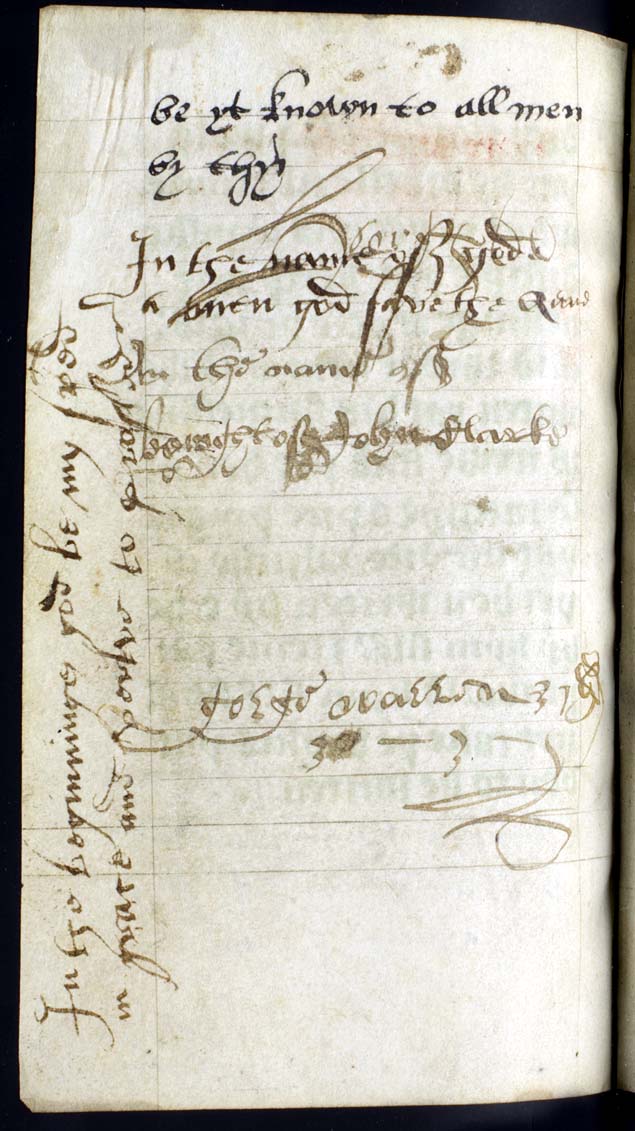 be yt known to all men
by thys
In the name of god
a men god save the
In the name off
John Clarke
gorge warron 31
30 — 3 —
In the beginninge god be my sped
in grace and vertue to